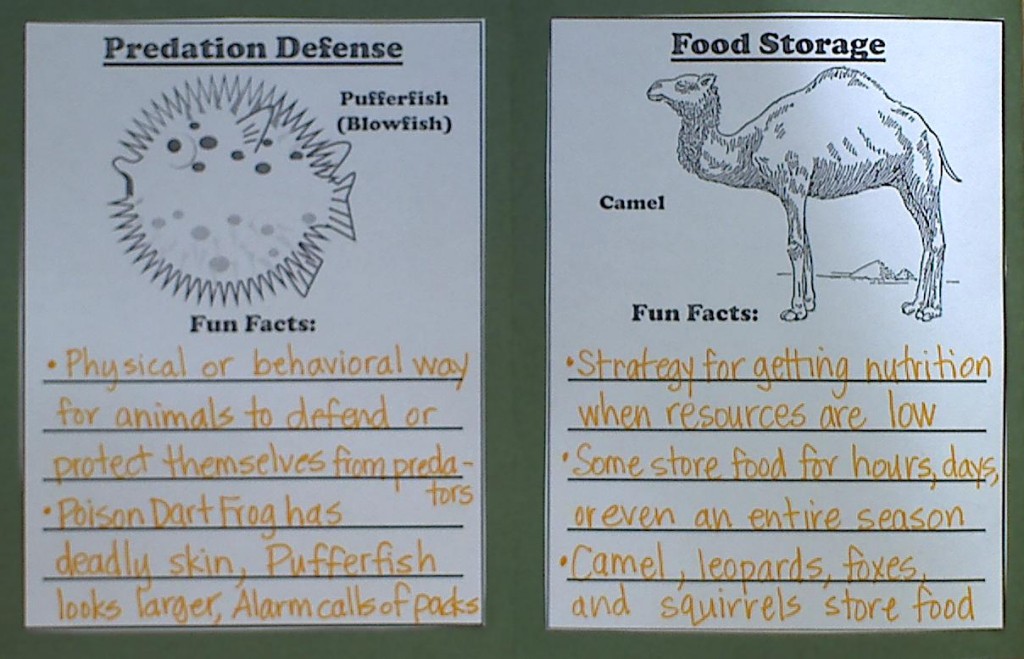 Predation Defense
Pufferfish
(Blowfish)
Fun Facts:
• Physical or behavioral way
for animals to defend or
protect themselves from preda-
tors
• Poison Dart Frog has
deadly skin, Pufferfish
looks larger, Alarm calls of packs
Food Storage
Camel
Fun Facts:
• Strategy for getting nutrition
when resources are low
• Some store food for hours, days,
or even an entire season
• Camel, leopards, foxes,
and squirrels store food